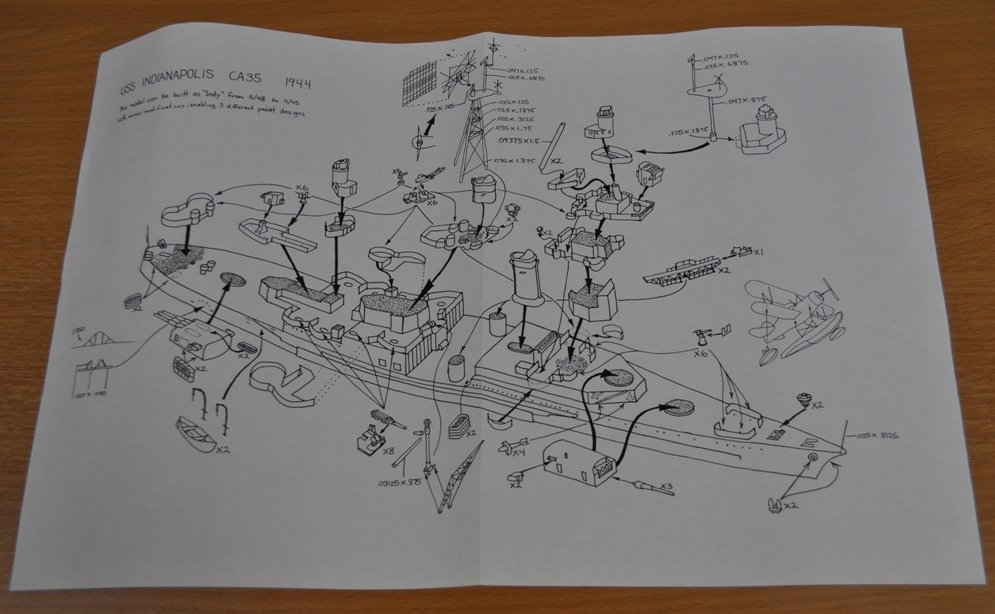 USS INDIANAPOLIS CA35 1944
This model can be built as "Indy" from 5/43 to 4/45
with minor modifications, enabling 3 different paint designs
.047X.125
.025X.6875
.025X.125
.025X.125
.025X.1875
.025X.3125
.035X1.75
.09375X1.5
.035X1.875
.047X.125
.025X.6875
.047X.875
.125X.1875
X2
X6
X6
X2
X1
X2
X2
X6
X2
X2
X2
X8
X2
.03125X.875
X4
X2
X3
X2
.025X.3125
X2